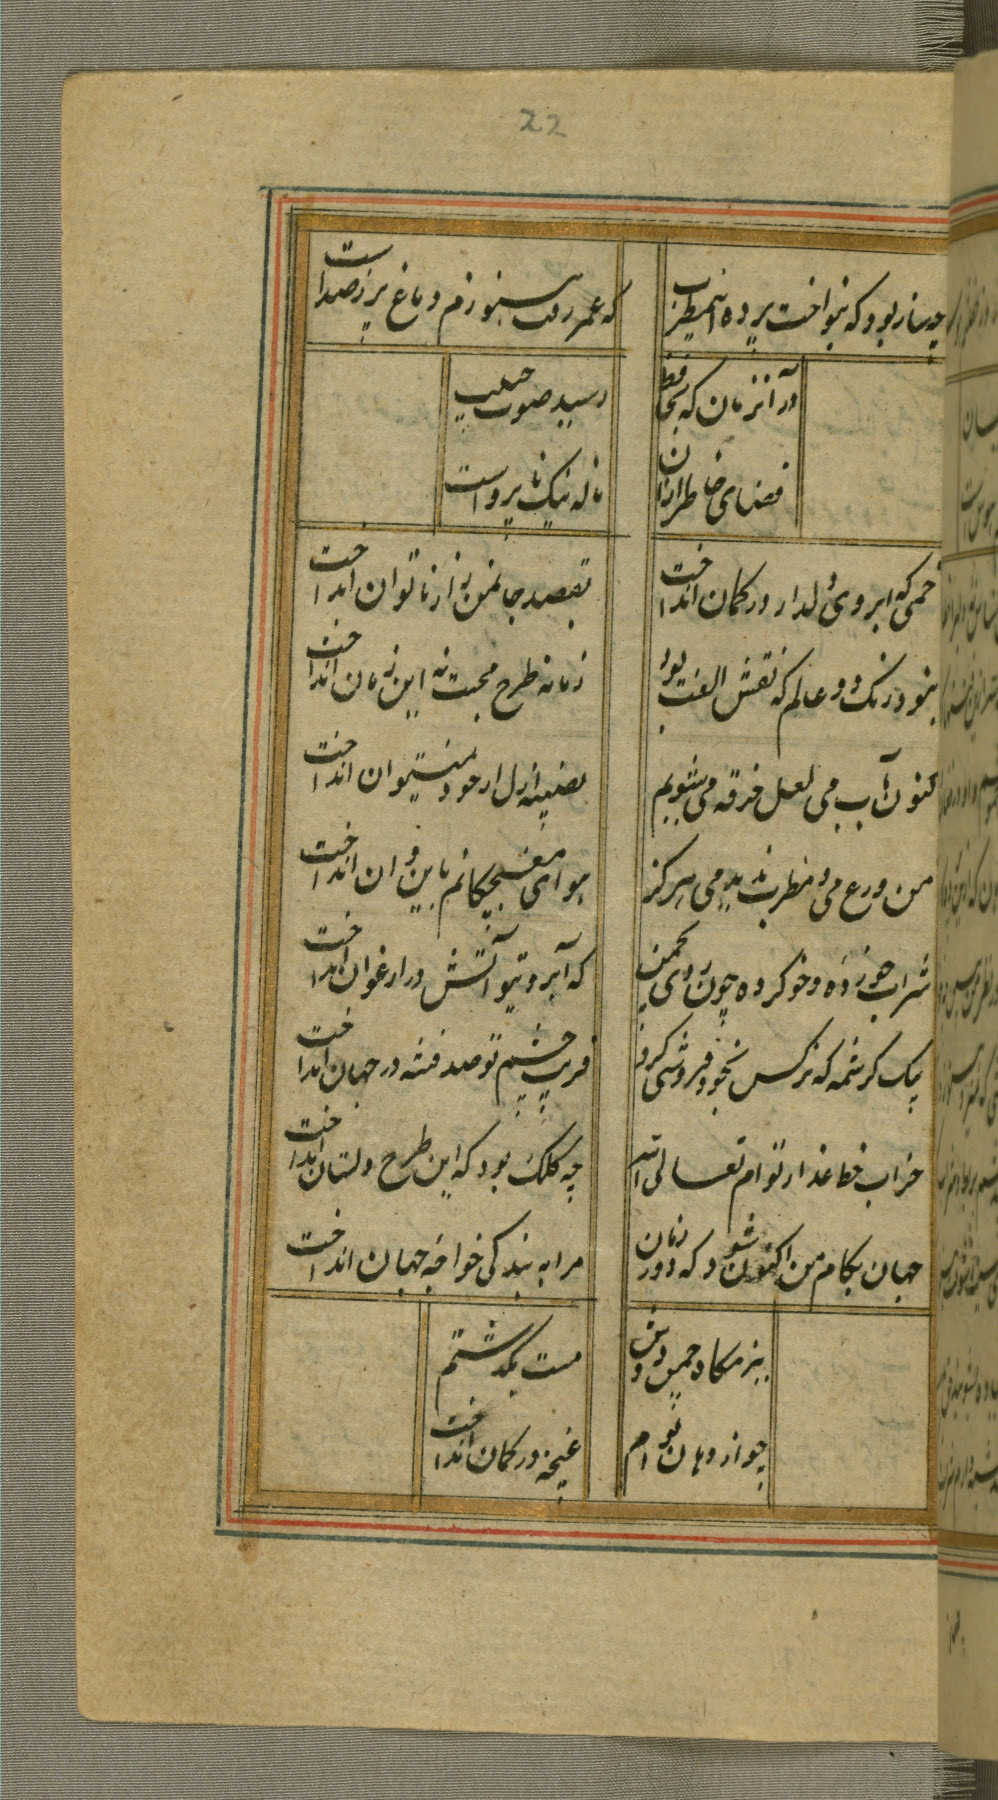 22
چه ساز بود که بنواخت پرده آنمطرب
که عمر رفت هنوزم دماغ پر ز صداست
در آنزمان که بحافظ
رسید صوت حبیب
فضای خاطر ازان
ناله نیک پرواست
خمی که ابروی دلدار در کمان انداخت
بقصد جانمن زار ناتوان انداخت
نبود رنک دو عالم که نقش الفت بود
زمانه طرح محبت نه این زمان انداخت
کنون بآب می لعل خرقه می شویم
نصیبه ازل از خود نمیتوان انداخت
من ورع می و مطرب ندیدمی هرکز
هوای مغبچکانم باین و آن انداخت
شراب خورده و خو کرده چون روی بچمن
که آبروی تو آتش در ارغوان انداخت
بیک کرشمه که نرکس بخود فروشی کرد
فریب چشم تو صد فتنه در جهان انداخت
خراب خط عذار تو ام تعالی الله
چه کلک بود که این طرح دلستان انداخت
جهان بکام من اکنون شود که دور زمان
مرا به بندکی خواجه جهان انداخت
ببزمکاه چمن دوش
مست بکذشتم
چو از دهان تو ام
غنچه در کمان انداخت